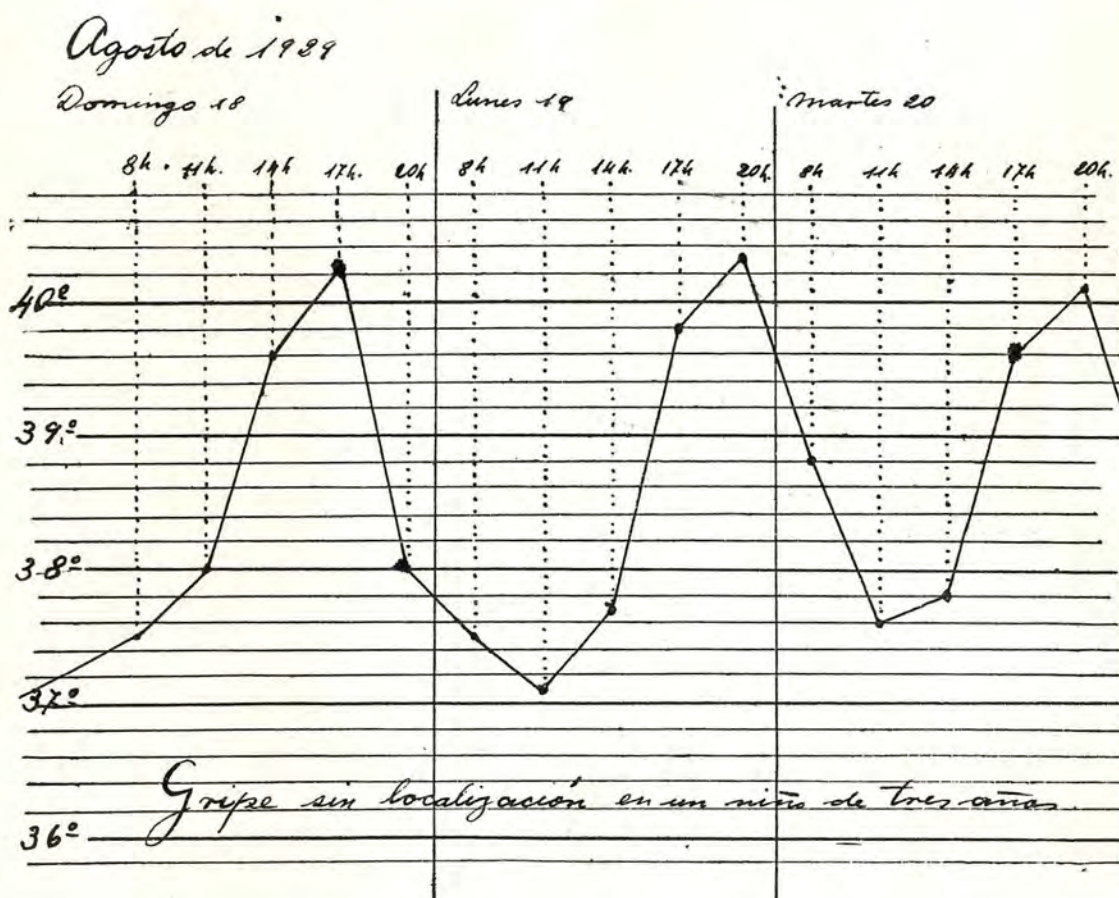 Agosto de 1929
Domingo 18 Lunes 19 martes 20
8h. 11h. 14h 17h. 20h 8h 11h 14h. 17h 20h. 8h 11h 14h 17h 20h.
40º
39º
38º
37º
Gripe sin localización en un niño de tres años.
36º